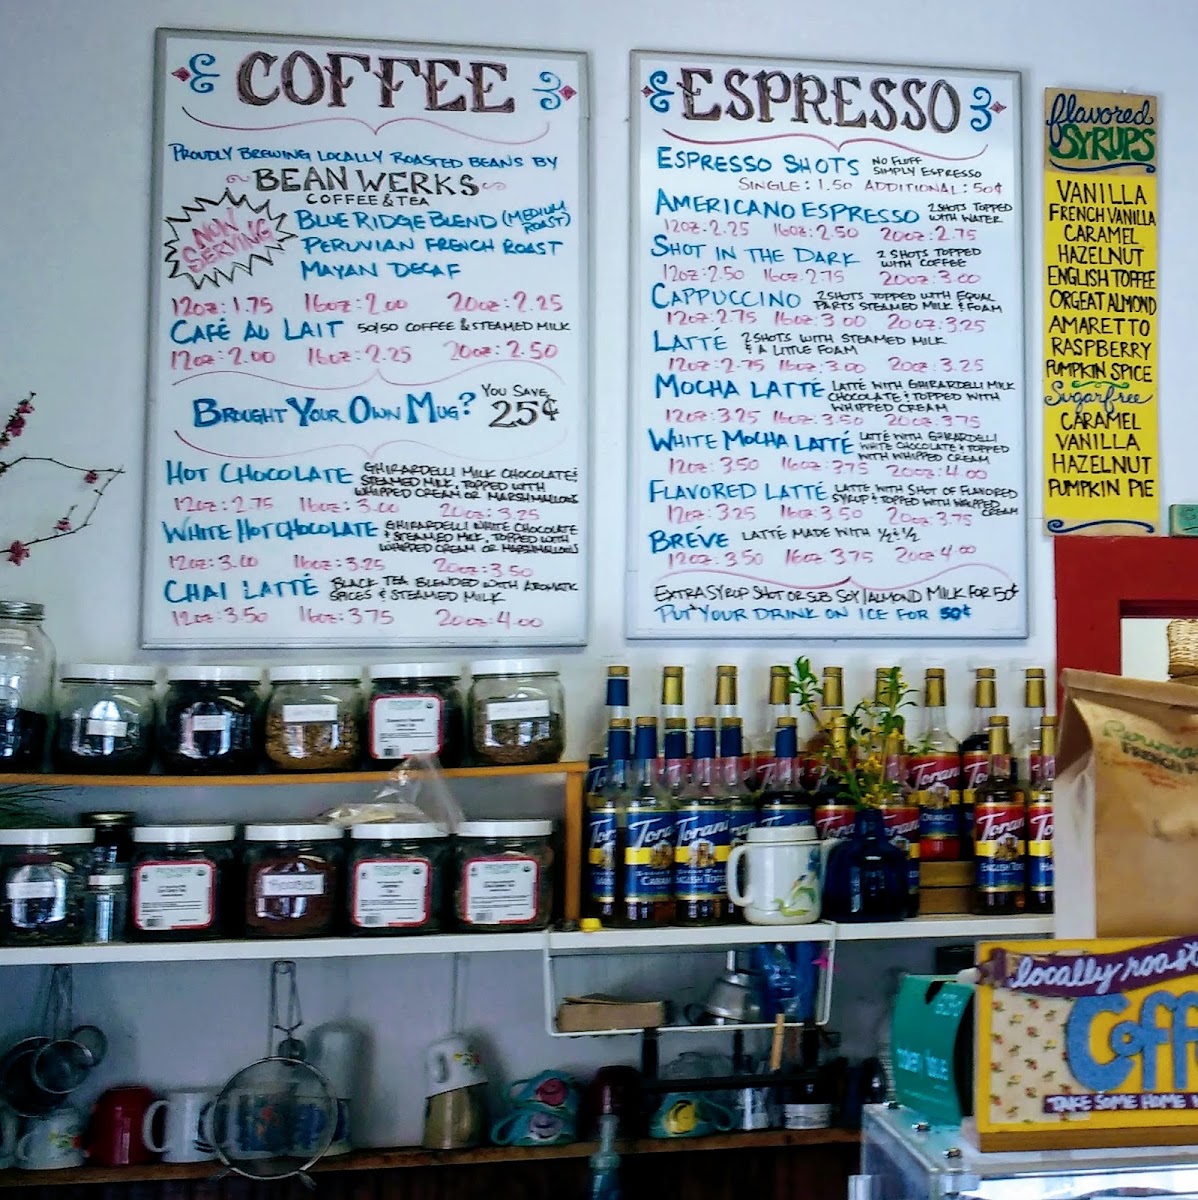 COFFEE
PROUDLY BREWING LOCALLY ROASTED BEANS BY
BEAN WERKS
COFFEE & TEA
NOW
SERVING
BLUE RIDGE BLEND (MEDIUM
ROAST)
PERUVIAN FRENCH ROAST
MAYAN DECAF
12oz: 1.75 16oz: 2.00 20oz: 2.25
CAFÉ AU LAIT 50/50 COFFEE & STEAMED MILK
12oz: 2.00 16oz: 2.25 20oz: 2.50
BROUGHT YOUR OWN MUG? YOU SAVE
25¢
HOT CHOCOLATE GHIRARDELLI MILK CHOCOLATE &
STEAMED MILK, TOPPED WITH
WHIPPED CREAM OR MARSHMALLOWS
12oz: 2.75 16oz: 3.00 20oz: 3.25
WHITE HOT CHOCOLATE GHIRARDELLI WHITE CHOCOLATE
& STEAMED MILK, TOPPED WITH
WHIPPED CREAM OR MARSHMALLOWS
12oz: 3.00 16oz: 3.25 20oz: 3.50
CHAI LATTÉ BLACK TEA BLENDED WITH AROMATIC
SPICES & STEAMED MILK
12oz: 3.50 16oz: 3.75 20oz: 4.00
ESPRESSO
ESPRESSO SHOTS NO FLUFF
SIMPLY ESPRESSO
SINGLE: 1.50 ADDITIONAL: 50¢
AMERICANO ESPRESSO 2 SHOTS TOPPED
WITH WATER
12oz. 2.25 16oz: 2.50 20oz: 2.75
SHOT IN THE DARK 2 SHOTS TOPPED
WITH COFFEE
12oz: 2.50 16oz: 2.75 20oz: 3.00
CAPPUCCINO 2 SHOTS TOPPED WITH EQUAL
PARTS STEAMED MILK & FOAM
12oz: 2.75 16oz: 3.00 20oz: 3.25
LATTÉ 2 SHOTS WITH STEAMED MILK
& A LITTLE FOAM
12oz: 2.75 16oz: 3.00 20oz: 3.25
MOCHA LATTÉ LATTÉ WITH GHIRARDELLI MILK
CHOCOLATE & TOPPED WITH
WHIPPED CREAM
12oz: 3.25 16oz: 3.50 20oz: 3.75
WHITE MOCHA LATTÉ LATTÉ WITH GHIRARDELLI
WHITE CHOCOLATE & TOPPED
WITH WHIPPED CREAM
12oz: 3.50 16oz: 3.75 20oz: 4.00
FLAVORED LATTÉ LATTÉ WITH SHOT OF FLAVORED
SYRUP & TOPPED WITH WHIPPED
CREAM
12oz: 3.25 16oz: 3.50 20oz: 3.75
BRÉVE LATTÉ MADE WITH ½ & ½
12oz: 3.50 16oz: 3.75 20oz: 4.00
EXTRA SYRUP SHOT OR SUB SOY/ALMOND MILK FOR 50¢
PUT YOUR DRINK ON ICE FOR 50¢
flavored
SYRUPS
VANILLA
FRENCH VANILLA
CARAMEL
HAZELNUT
ENGLISH TOFFEE
ORGEAT ALMOND
AMARETTO
RASPBERRY
PUMPKIN SPICE
Sugarfree
CARAMEL
VANILLA
HAZELNUT
PUMPKIN PIE
Torani
ORANGE
Torani
ENGLISH TOFFEE
Torani
ENGLISH TOFFEE
ROOIBOS
locally roast
Coff
TAKE SOME HOME